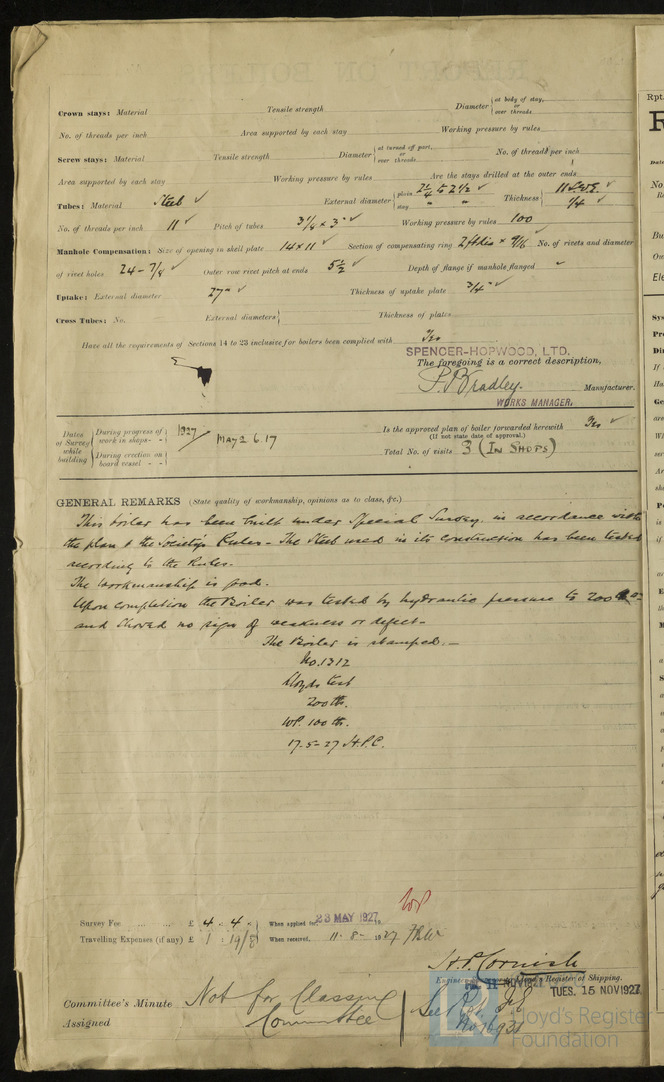 Crown stays: Material Tensile strength Diameter { at body of stay, or over threads
No. of threads per inch Area supported by each stay Working pressure by rules
Screw stays: Material Tensile strength Diameter { at turned off part, or over threads No. of threads per inch
Area supported by each stay Working pressure by rules Are the stays drilled at the outer ends
Tubes: Material Steel ✓ External diameter { plain 2 1/4 to 2 1/2 ✓ stay " " Thickness { 11 LSWG ✓ 1/4 ✓
No. of threads per inch 11 ✓ Pitch of tubes 3 1/8 x 3" ✓ Working pressure by rules 100
Manhole Compensation: Size of opening in shell plate 14 x 11 ✓ Section of compensating ring 2ft dia x 9/16 ✓ No. of rivets and diameter
of rivet holes 24 - 7/8 ✓ Outer row rivet pitch at ends 5 1/2 ✓ Depth of flange if manhole flanged ✓
Uptake: External diameter 27" ✓ Thickness of uptake plate 3/4" ✓
Cross Tubes: No. External diameters { Thickness of plates
Have all the requirements of Sections 14 to 23 inclusive for boilers been complied with Yes
SPENCER-HOPWOOD, LTD.
The foregoing is a correct description,
Bradley. Manufacturer.
WORKS MANAGER.
Dates of Survey while building { During progress of work in shops - - During erection on board vessel - - } 1927 / MAY 2 6.17
Is the approved plan of boiler forwarded herewith Yes ✓
(If not state date of approval.)
Total No. of visits 3 (IN SHOPS)
GENERAL REMARKS (State quality of workmanship, opinions as to class, &c.)
This boiler has been built under Special Survey in accordance with
the plan & the Society's Rules - The Steel used in its construction has been tested
according to the Rules.
The workmanship is good.
Upon completion the Boiler was tested by hydraulic pressure to 200
and showed no sign of weakness or defect.
The Boiler is stamped. -
No. 1312
Lloyds test
200 lb.
WP. 100 lb.
17-5-27 H.P.C.
Survey Fee ... ... £ 4 : 4 : When applied for, 23 MAY 1927
Travelling Expenses (if any) £ 1 : 19/8 When received, 11-8-1927
H.P. Cornish
Engineer Surveyor to Lloyd's Register of Shipping.
NOV 1927
TUES. 15 NOV 1927
Committee's Minute Not for Classing
Committee
Assigned
See Rpt
Lloyd's Register
Foundation